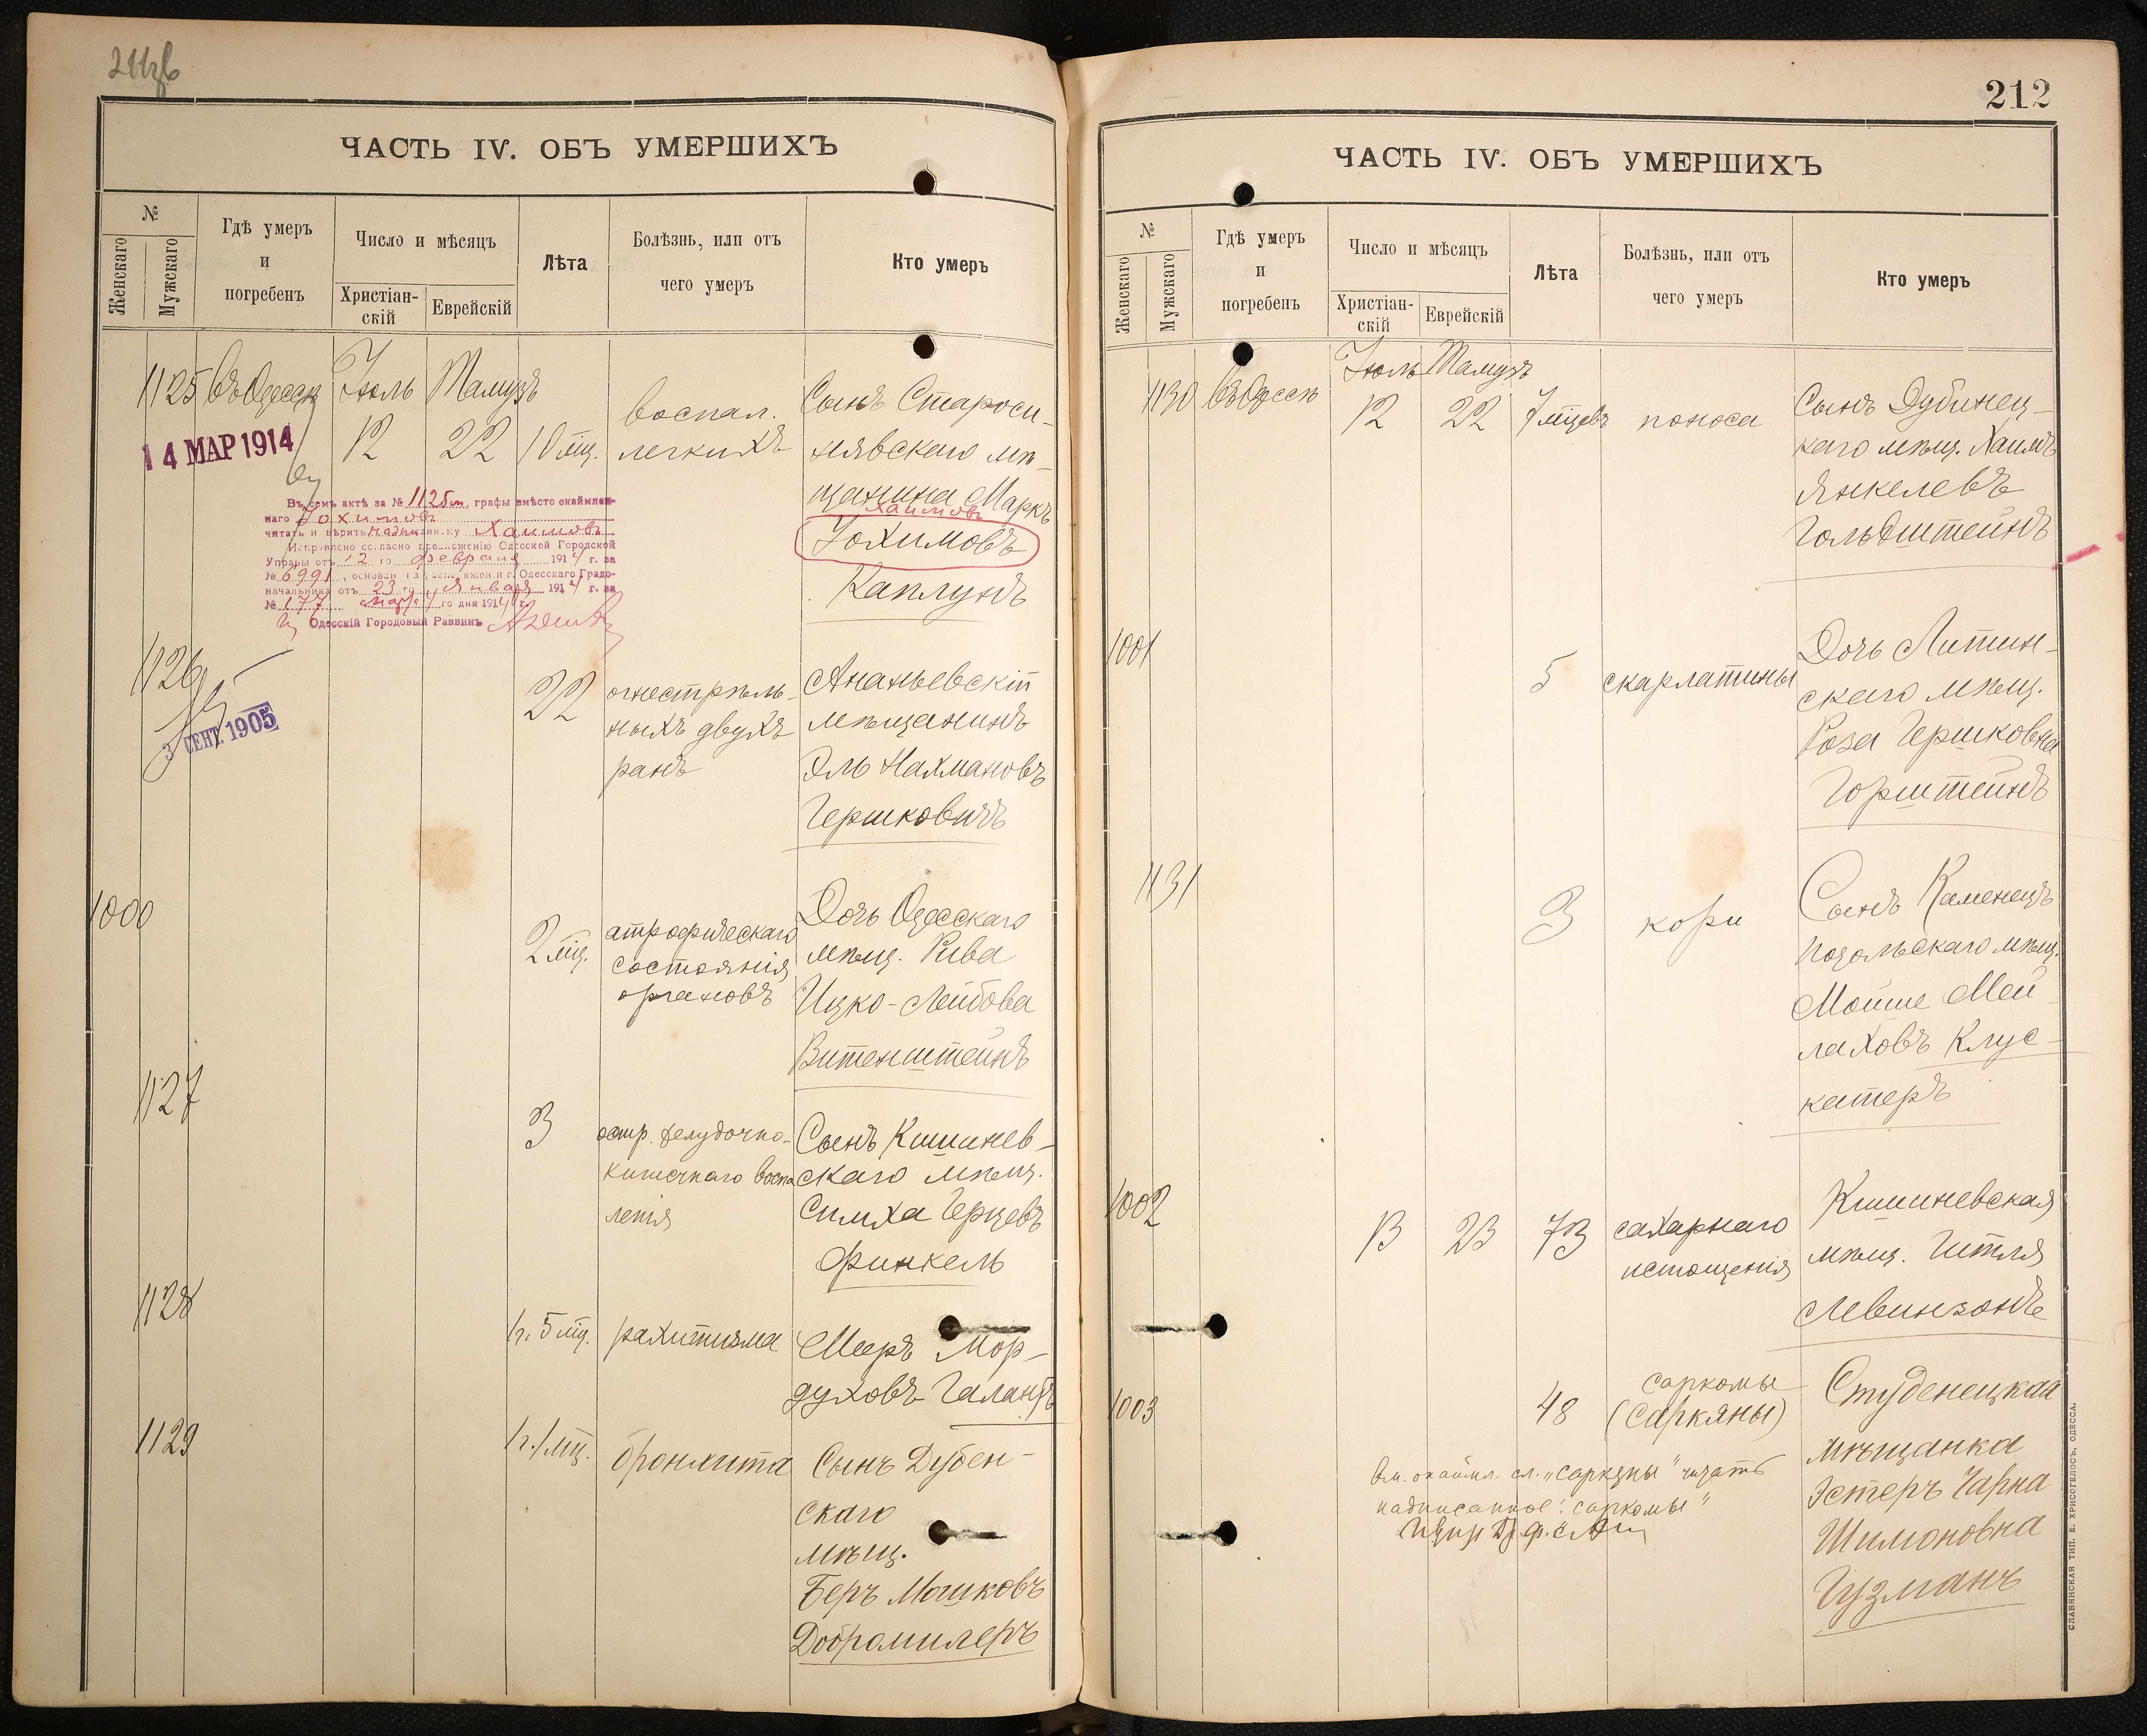 211зв
ЧАСТЬ IV. ОБЪ УМЕРШИХЪ
№
Женскаго
Мужскаго
Гдѣ умеръ
и
погребенъ
Число и мѣсяцъ
Христіан-
скій
Еврейскій
Лѣта
Болѣзнь, или отъ
чего умеръ
Кто умеръ
1125
въ Одессѣ
Іюль
12
Тамузъ
22
10 мц.
воспал.
легкихъ
Сынъ Староси-
нявскаго мѣ-
щанина Маркъ
Хаимовъ
Іохимовъ
Каплунъ
14 МАР 1914
Въ семъ актѣ за № 1125м, графы вмѣсто окаймлен-
наго Іохимовъ
читать и вѣрить надписанному Хаимовъ
Исправлено согласно предложенію Одесской Городской
Управы отъ 12 го февраля 1914 г. за
№ 6991, основан. на распоряжени г. Одесскаго Градо-
начальника отъ 23 го Января 1914 г. за
№ 177 Март 4 го дня 1914 г.
Одесскій Городовый Раввинъ
1126
3 СЕНТ. 1905
22
огнестрѣль-
ныхъ двухъ
ранъ
Ананьевскій
мѣщанинъ
Эль Нахмановъ
Гершковичъ
1000
2 мц.
атрофическаго
состоянія
органовъ
Дочь Одесскаго
мѣщ. Рива
Ицко-Лейбова
Витенштейнъ
1127
3
остр. желудочно-
кишечнаго воспа
ленія
Сынъ Кишинев-
скаго мѣщ.
Симха Герцевъ
Финкель
1128
1 г. 5 мц.
рахитизма
Мееръ Мор-
духовъ Галантъ
1129
1 г. 1 мц.
бронхита
Сынъ Дубен-
скаго
мѣщ.
Беръ Мошковъ
Добромилеръ
212
ЧАСТЬ IV. ОБЪ УМЕРШИХЪ
№
Женскаго
Мужскаго
Гдѣ умеръ
и
погребенъ
Число и мѣсяцъ
Христіан-
скій
Еврейскій
Лѣта
Болѣзнь, или отъ
чего умеръ
Кто умеръ
1130
въ Одессѣ
Іюль
12
Тамузъ
22
7 мцевъ
поноса
Сынъ Дубинец-
каго мѣщ. Хаимъ
Янкелевъ
Гольдштейнъ
1001
5
скарлатины
Дочь Литин-
скаго мѣщ.
Роза Гершковна
Горштейнъ
1131
3
кори
Сынъ Каменецъ
Подольскаго мѣщ.
Мойше Мей
лаховъ Клус-
катеръ
1002
13
23
73
сахарнаго
истощенія
Кишиневская
мѣщ. Гитля
Левинзонъ
1003
48
саркомы
(саркяны)
Студенецкая
мѣщанка
Эстеръ Чарна
Шимоновна
Гузманъ
Вм. окаймл. сл. „саркяны" читать
надписанное: саркомы"
СЛАВЯНСКАЯ ТИП. Е. ХРИСОГЕЛОСЪ, ОДЕССА.